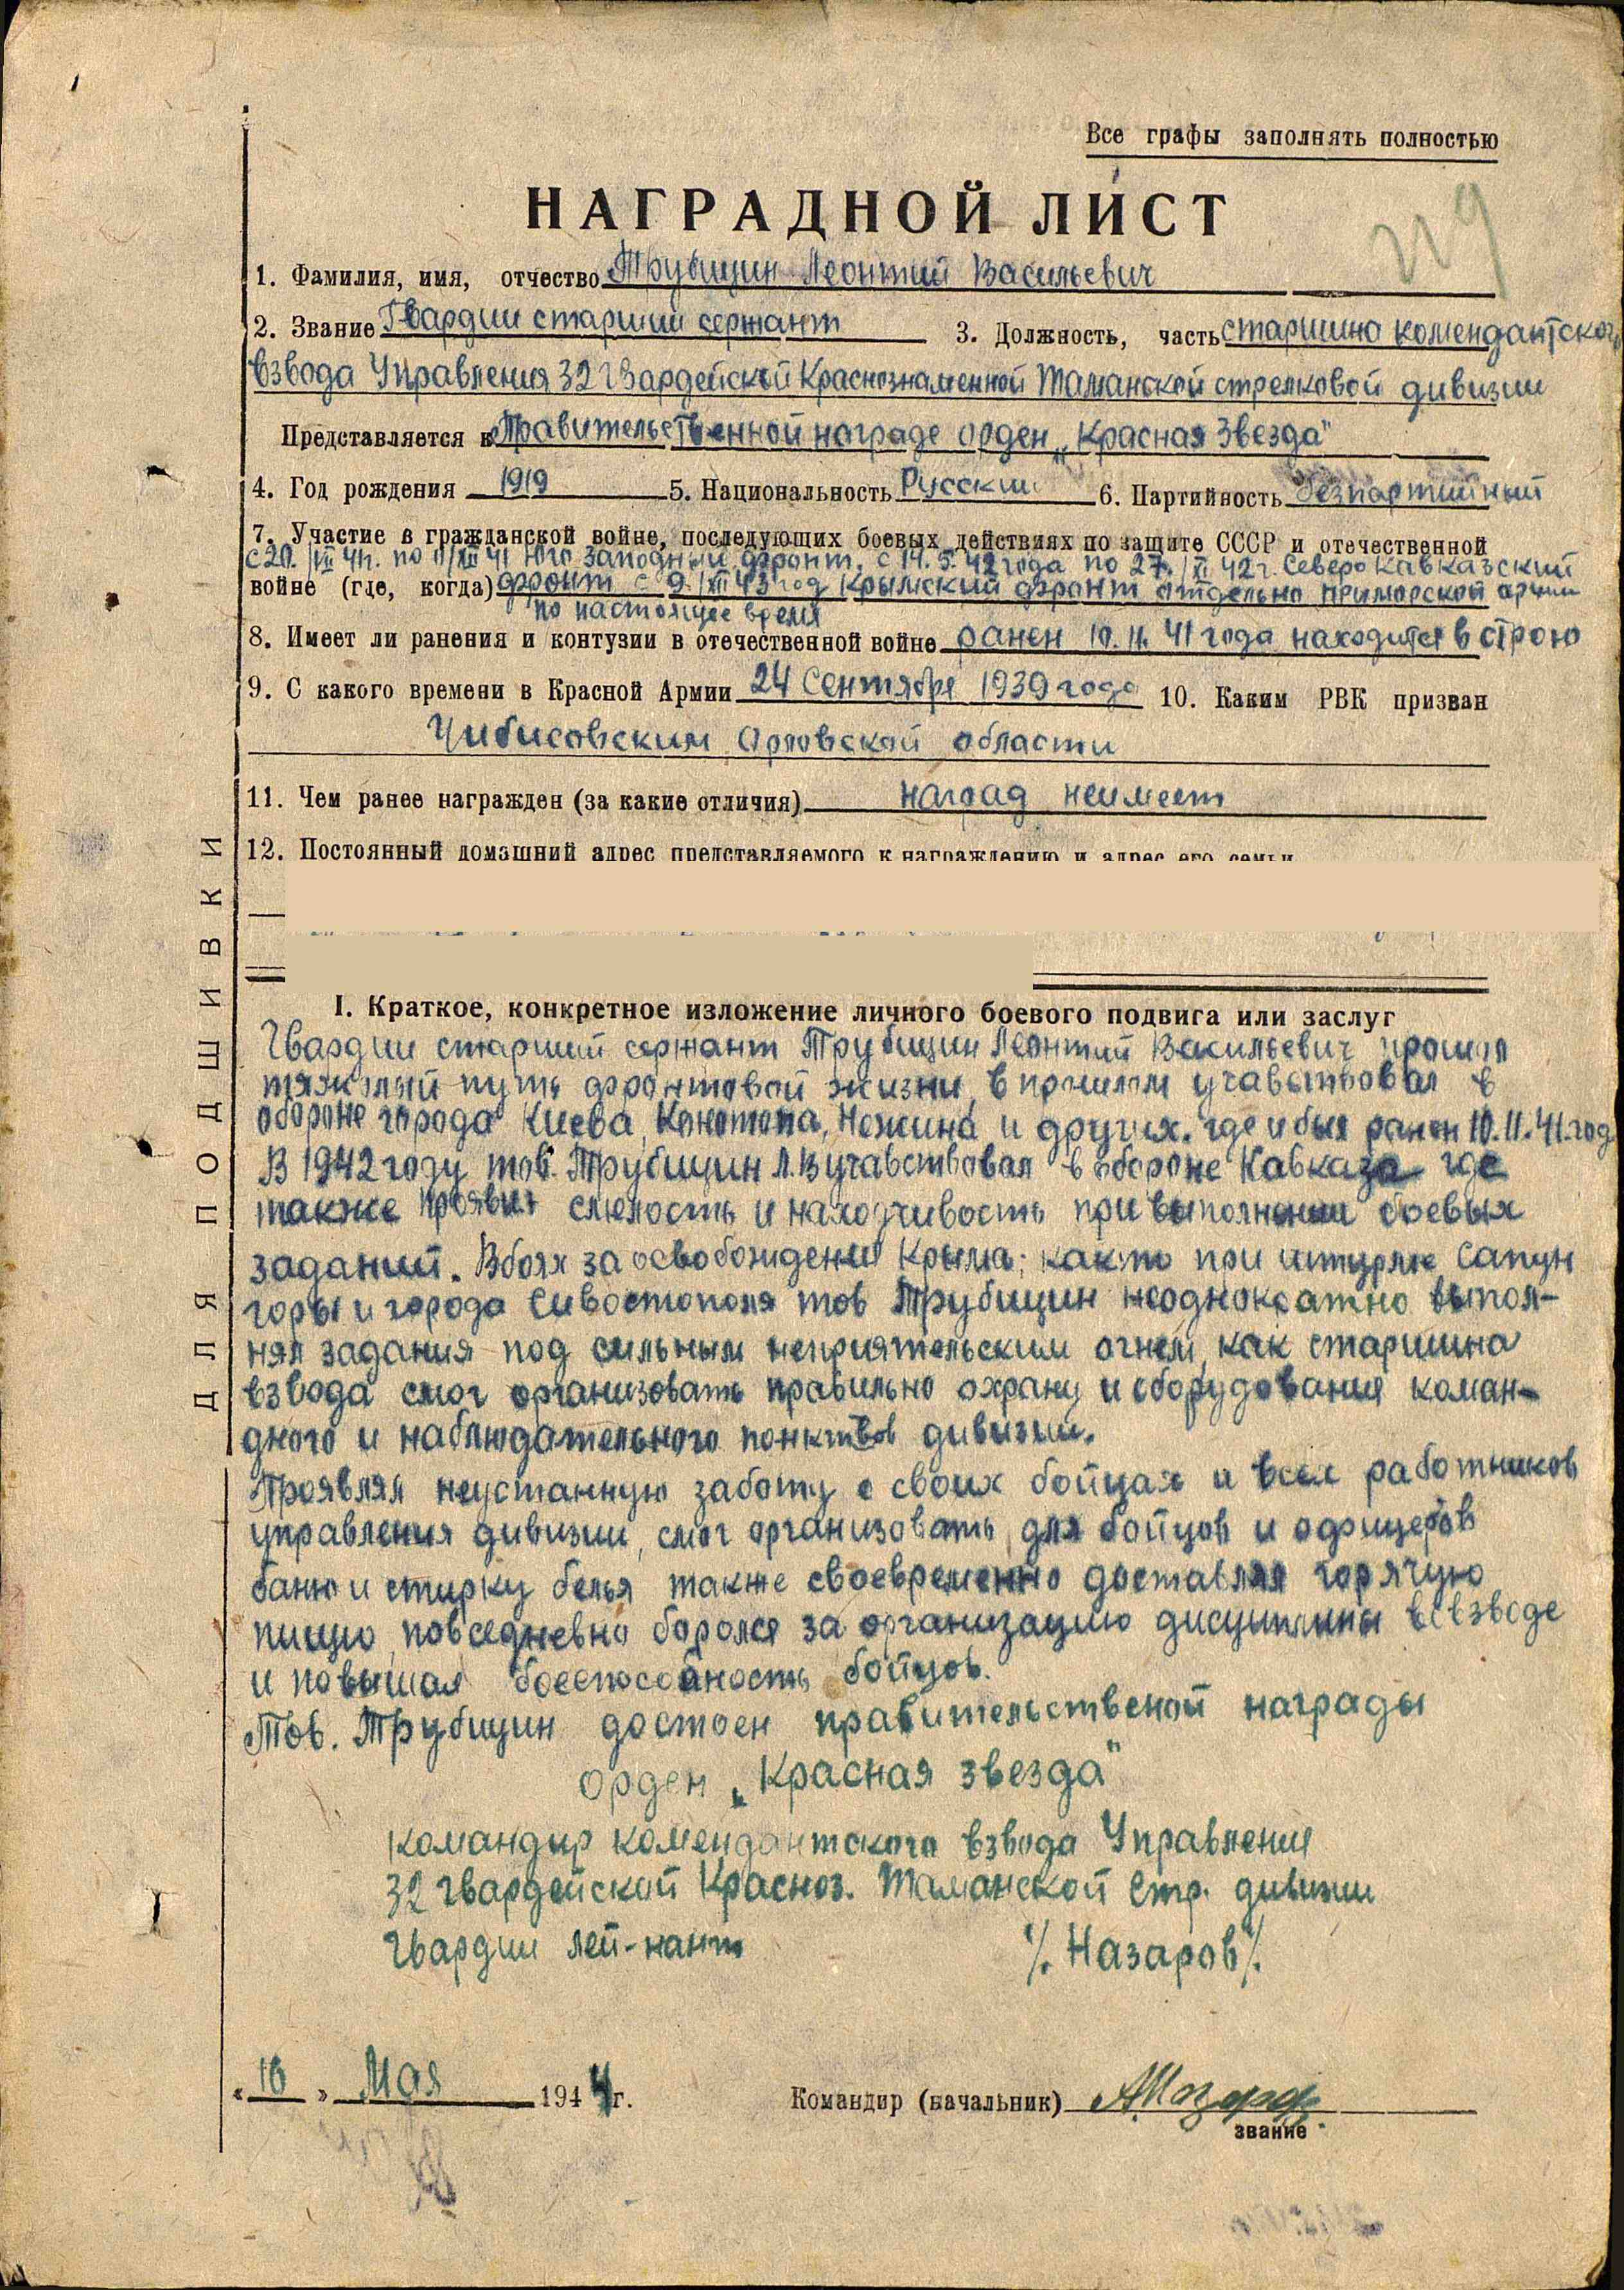 Все графы заполнять полностью
НАГРАДНОЙ ЛИСТ
119
1. Фамилия, имя, отчество Трубицин Леонтий Васильевич
2. Звание Гвардии старший сержант 3. Должность, часть старшина комендантского
взвода Управления 32 Гвардейской Краснознаменной Таманской стрелковой дивизии
Представляется к Правительственной награде орден „Красная Звезда"
4. Год рождения 1919 5. Национальность Русский 6. Партийность безпартийный
7. Участие в гражданской войне, последующих боевых действиях по защите СССР и отечественной
с 20. 41г. по 41 Юго западный фронт. с 14. 5. 42 года по 27. 42 г. Северо Кавказский
войне (где, когда) фронт с 9. 43 год Крымский фронт отдельно приморской армии
по настоящее время
8. Имеет ли ранения и контузии в отечественной войне ранен 10. 11. 41 года находится в строю
9. С какого времени в Красной Армии 24 Сентября 1939 года 10. Каким РВК призван
Чибисовским Орловской области
11. Чем ранее награжден (за какие отличия) наград неимеет
12. Постоянный домашний адрес представляемого к награждению и адрес его семьи
ДЛЯ ПОДШИВКИ
I. Краткое, конкретное изложение личного боевого подвига или заслуг
Гвардии старший сержант Трубицин Леонтий Васильевич прошол
тяжолый путь фронтовой жизни, в прошлом учавствовал в
обороне города Киева, Конотопа, Нежина и других. где и был ранен 10. 11. 41. год
В 1942 году тов. Трубицин Л.В учавствовал в обороне Кавказа где
также проявил смелость и находчивость при выполнении боевых
заданий. Вбоях за освобождения Крыма; както при штурме Сапун
горы и города Сивостополя тов Трубицин неоднократно выпол-
нял задания под сильным неприятельским огнем, как старшина
взвода смог организовать правильно охрану и оборудования коман-
дного и наблюдательного понктвов дивизии.
Проявлял неустанную заботу о своих бойцах и всех работников
управления дивизии, смог организовать для бойцов и офицеров
баню и стирку белья также своевременно доставлял горячую
пищю, повседневно боролся за организацию дисциплины вовзводе
и повышал боеспособность бойцов.
Тов. Трубицин достоен правительственой награды
орден „Красная звезда"
командир комендантского взвода Управления
32 гвардейской Красноз. Таманской Стр. дивизии
Гвардии лей-нант /. Назаров /.
« 16 » Мая 1944 г. Командир (начальник)
звание